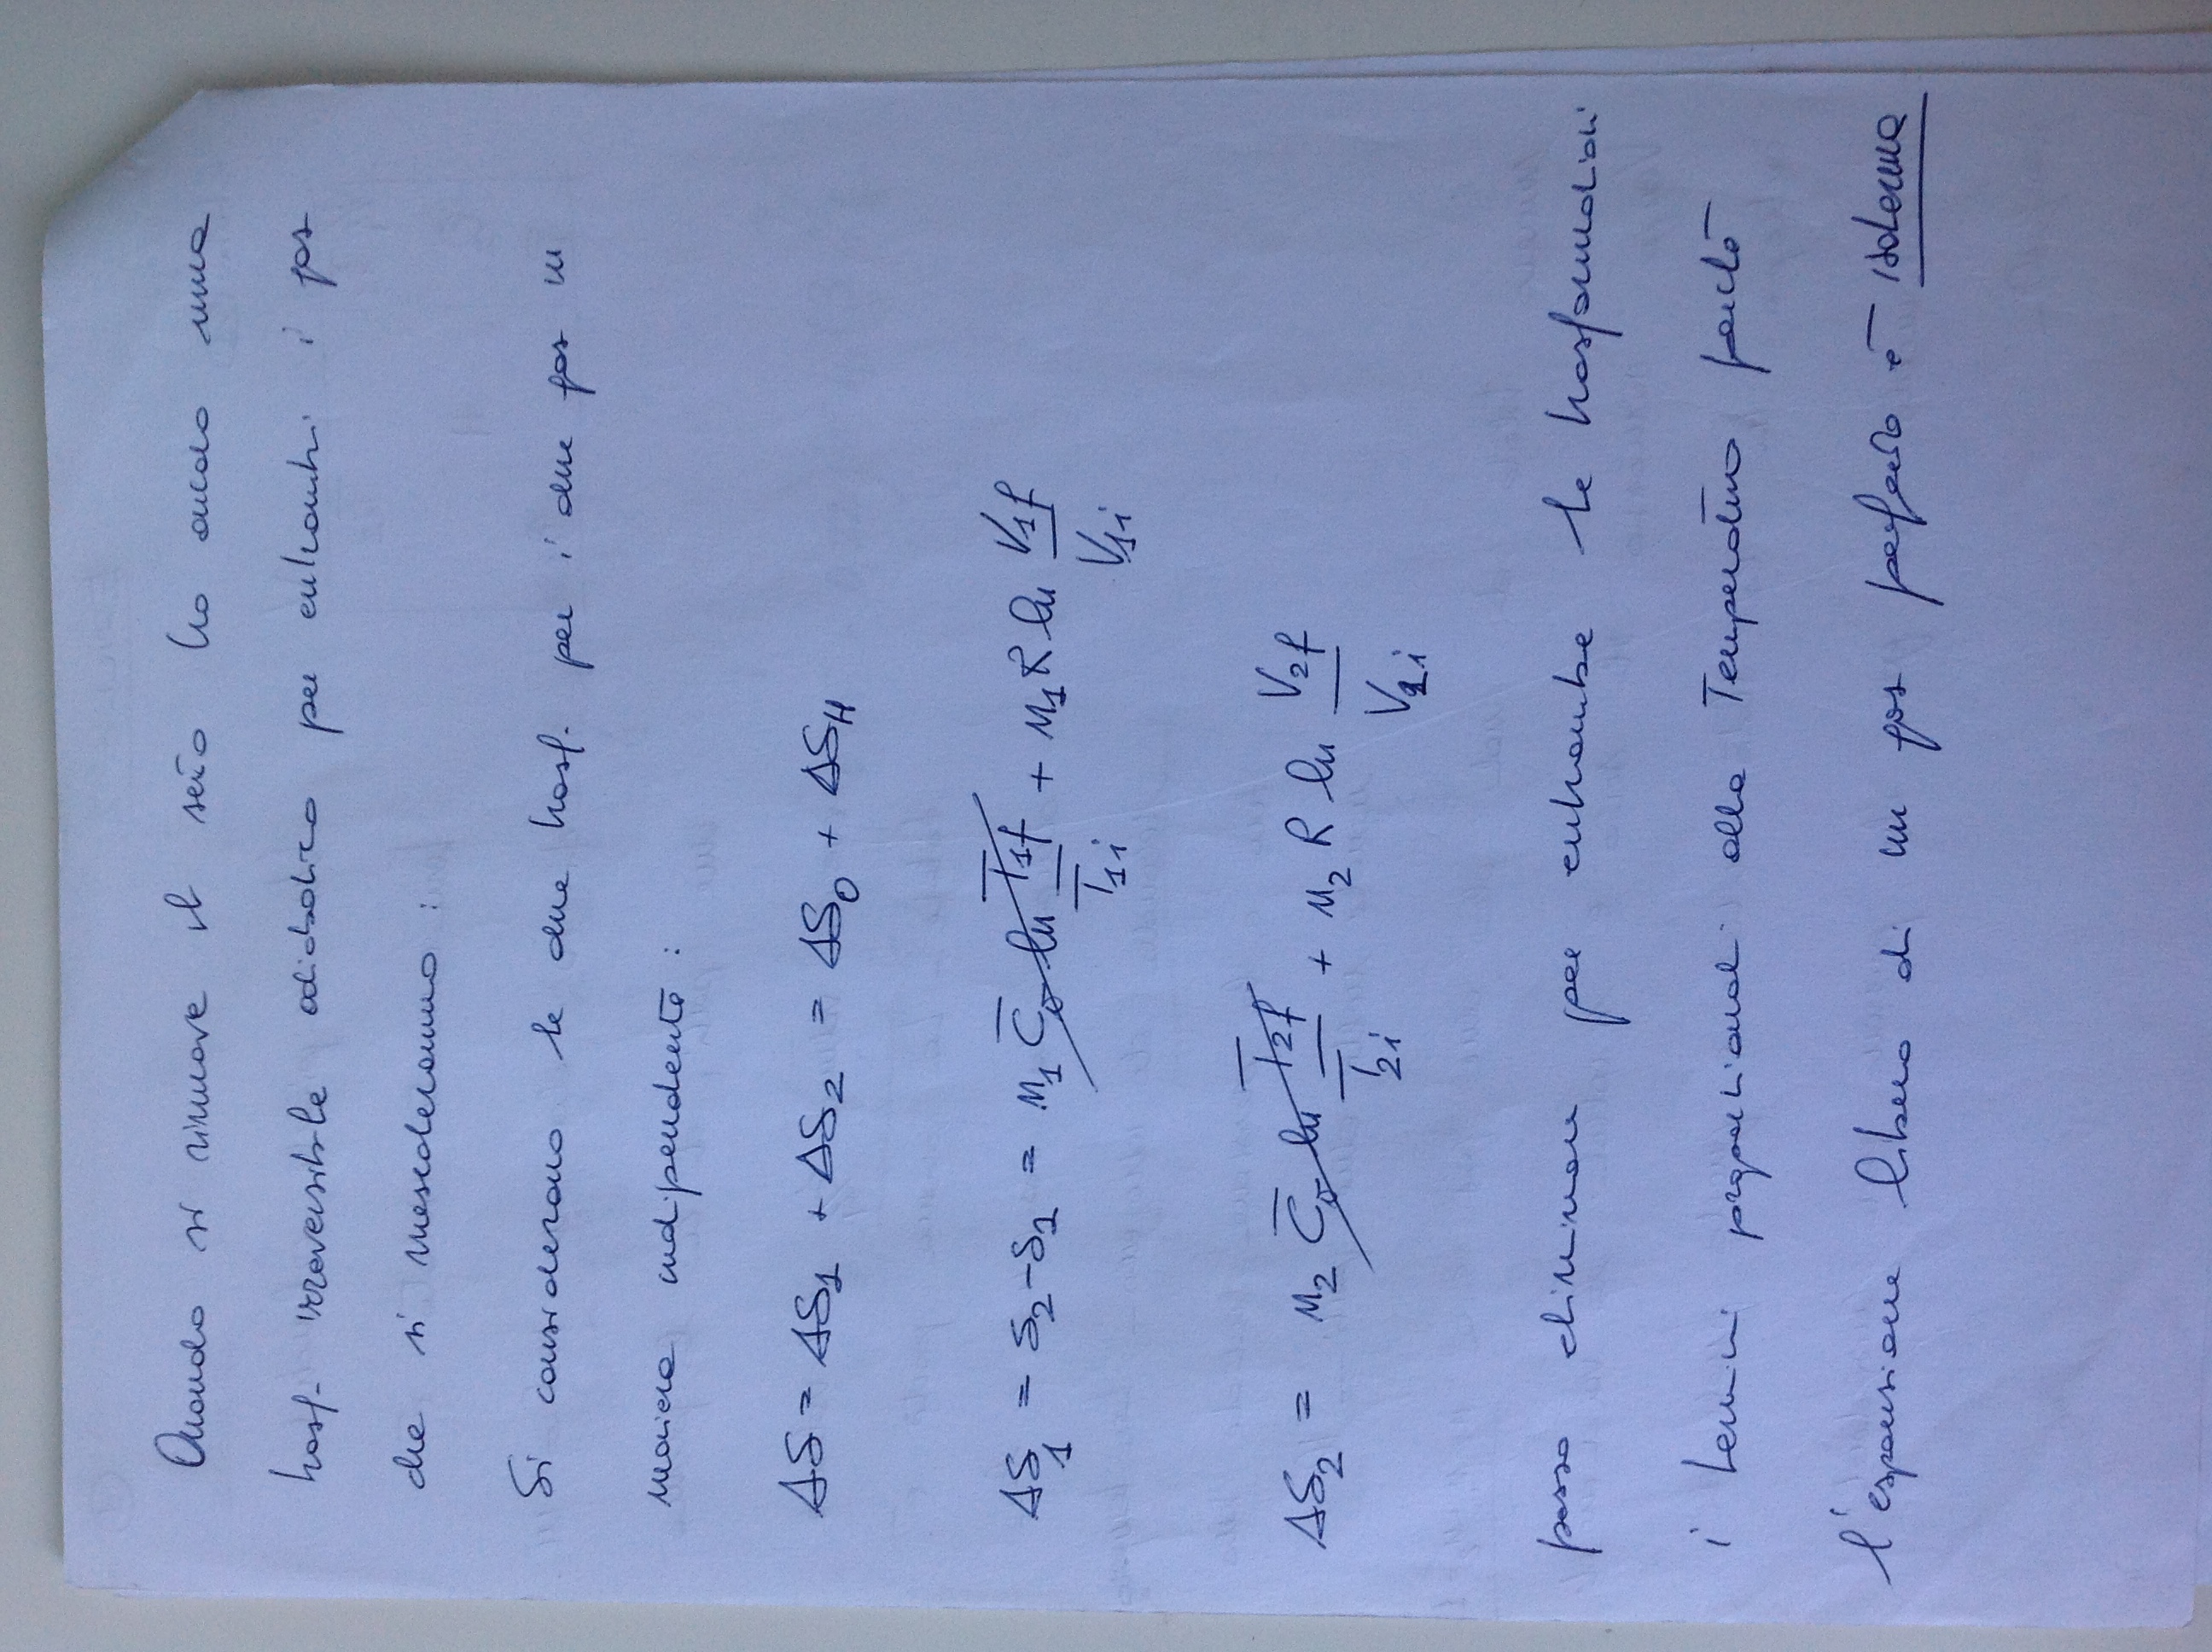 Quando si rimuove il setto ho anche una
trasf. irreversibile adiabatica per entrambi i gas
che si mescoleranno :
Si considerano le due trasf. per i due gas in
maiera indipendente :
ΔS = ΔS₁ + ΔS₂ = ΔS₀ + ΔS_H
ΔS₁ = S₂ - S₁ = n₁ C̅ᵥ ln T₁f/T₁i + n₁ R ln V₁f/V₁i
ΔS₂ = n₂ C̅ᵥ ln T₂f/T₂i + n₂ R ln V₂f/V₂i
posso eliminare per entrambe le trasformazioni
i termini proporzionali alla Temperatura perché
l'espansione libera di un gas perfetto è isoterma